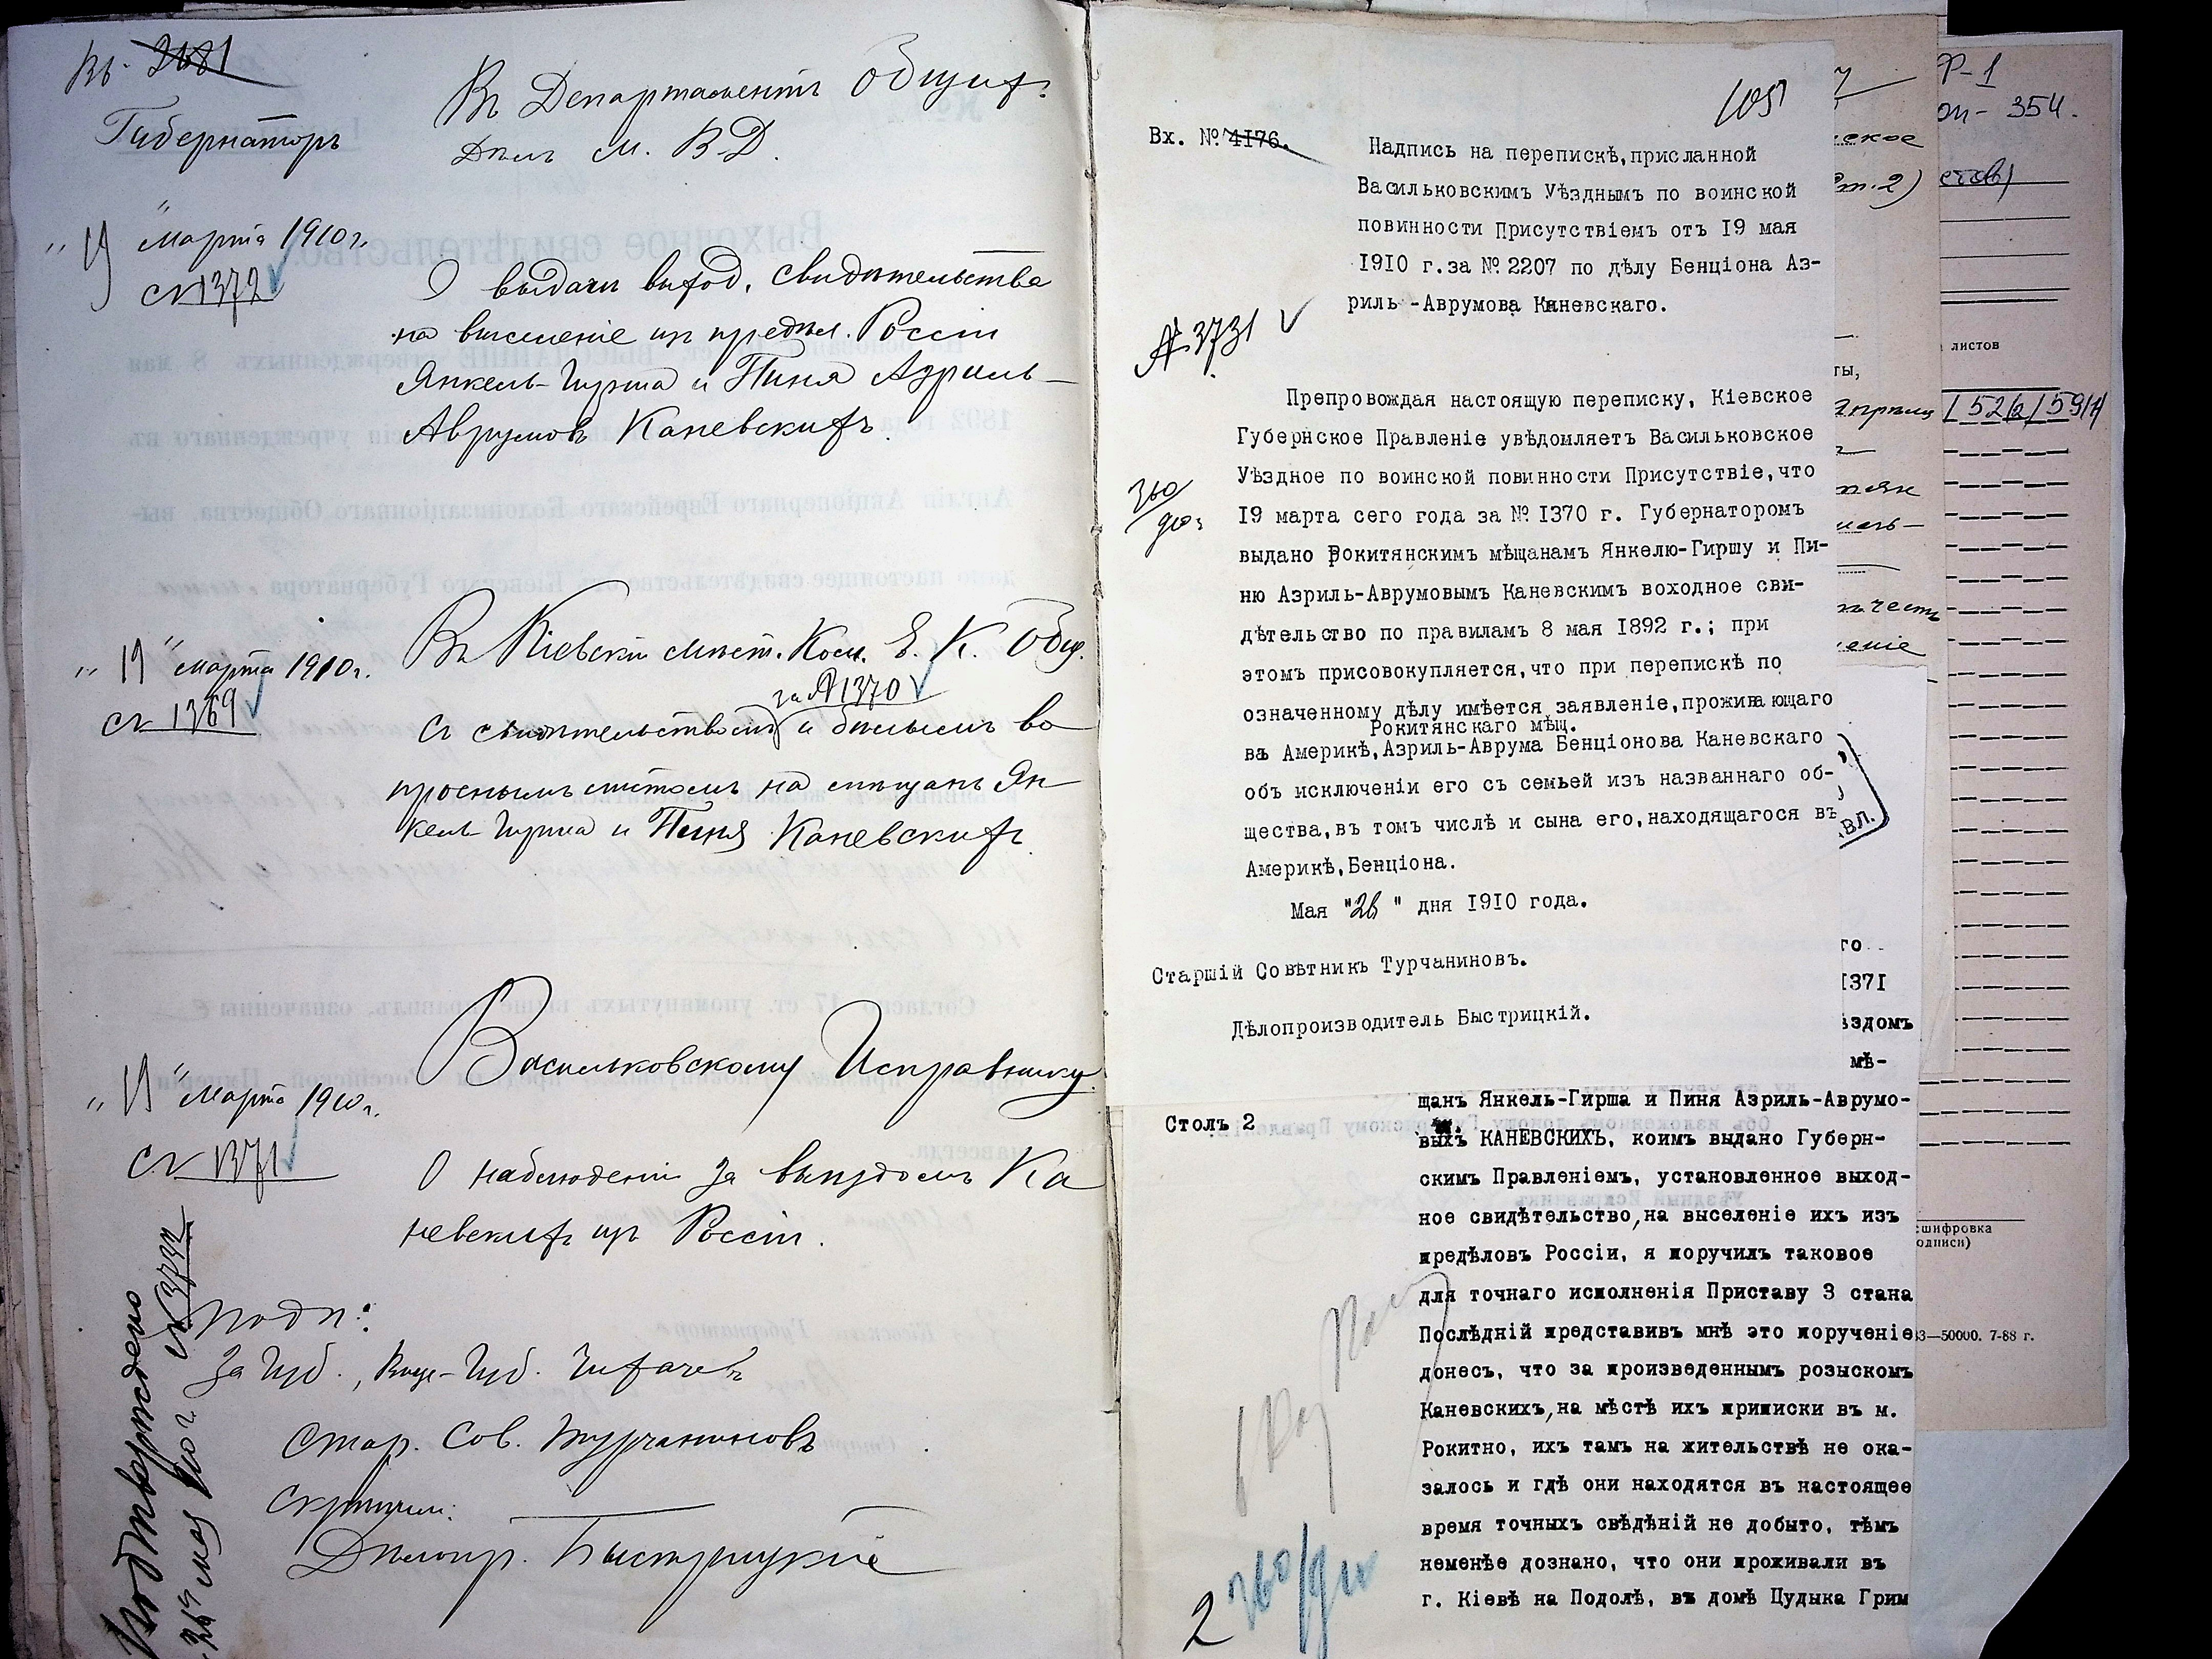 Вх. 2681
Губернаторъ
Въ Департаментъ Общих.
Дѣлъ М. В. Д.
"19" Марта 1910 г.
№ 1372
О выдачи выход. свидѣтельства
на выселеніе изъ предѣл. Россіи
Янкель-Гирша и Пиня Азриль-
Аврумовъ Каневскихъ.
"19" марта 1910 г.
№ 1369
Въ Кіевскій Мѣст. Ком. Е. К. Общ.
за № 1370
Съ свидѣтельствомъ и бѣлымъ во
проснымъ листомъ на мѣщанъ Ян
кель-Гирша и Пиня Каневскихъ
"19" Марта 1910 г.
№ 1371
Васильковскому Исправнику
О наблюденіи за выѣздомъ Ка
невскихъ изъ Россіи.
Подп:
За Губ., Вице-Губ. Чихачевъ
Стар. Сов. Турчаниновъ
Скрѣпилъ:
Дѣлопр. Быстрицкій
Подтверждено
26 мая 1910 г. № 3732
105
Вх. № 4176.
Надпись на перепискѣ,присланной
Васильковскимъ Уѣзднымъ по воинской
повинности Присутствіемъ отъ I9 мая
I9I0 г.за № 2207 по дѣлу Бенціона Аз-
риль -Аврумова Каневскаго.
№ 3731
360/910 г.
Препровождая настоящую переписку, Кіевское
Губернское Правленіе увѣдомляетъ Васильковское
Уѣздное по воинской повинности Присутствіе,что
I9 марта сего года за № I370 г. Губернаторомъ
выдано Рокитянскимъ мѣщанамъ Янкелю-Гиршу и Пи-
ню Азриль-Аврумовымъ Каневскимъ воходное сви-
дѣтельство по правиламъ 8 мая I892 г.; при
этомъ присовокупляется,что при перепискѣ по
означенному дѣлу имѣется заявленіе,проживающаго
Рокитянскаго мѣщ.
въ Америкѣ,Азриль-Аврума Бенціонова Каневскаго
объ исключеніи его съ семьей изъ названнаго об-
щества,въ томъ числѣ и сына его,находящагося въ
Америкѣ,Бенціона.
Мая "26" дня I9I0 года.
Старшій Совѣтникъ Турчаниновъ.
Дѣлопроизводитель Быстрицкій.
го
I37I
ѣздомъ
мѣ-
Столъ 2
щанъ Янкель-Гирша и Пиня Азриль-Аврумо-
выхъ КАНЕВСКИХЪ, коимъ выдано Губерн-
скимъ Правленіемъ, установленное выход-
ное свидѣтельство,на выселеніе ихъ изъ
предѣловъ Россіи, я поручилъ таковое
для точнаго исполненія Приставу 3 стана
Послѣдній представивъ мнѣ это порученіе
донесъ, что за произведеннымъ розыскомъ
Каневскихъ,на мѣстѣ ихъ приписки въ м.
Рокитно, ихъ тамъ на жительствѣ не ока-
залось и гдѣ они находятся въ настоящее
время точныхъ свѣдѣній не добыто, тѣмъ
неменѣе дознано, что они проживали въ
г. Кіевѣ на Подолѣ, въ домѣ Цудыка Грим
2 360/910
вл.
Р-1
оп- 354.
ское
т.2)
листов
ты,
52/2/59/1
ение
сшифровка
одписи)
3—50000. 7-88 г.